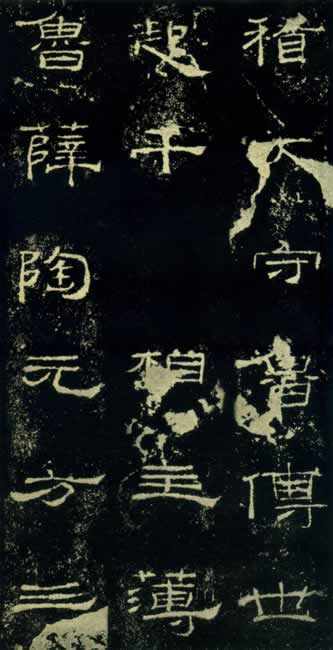 稽大守魯傅世
起千 相主薄
魯薛陶元方三